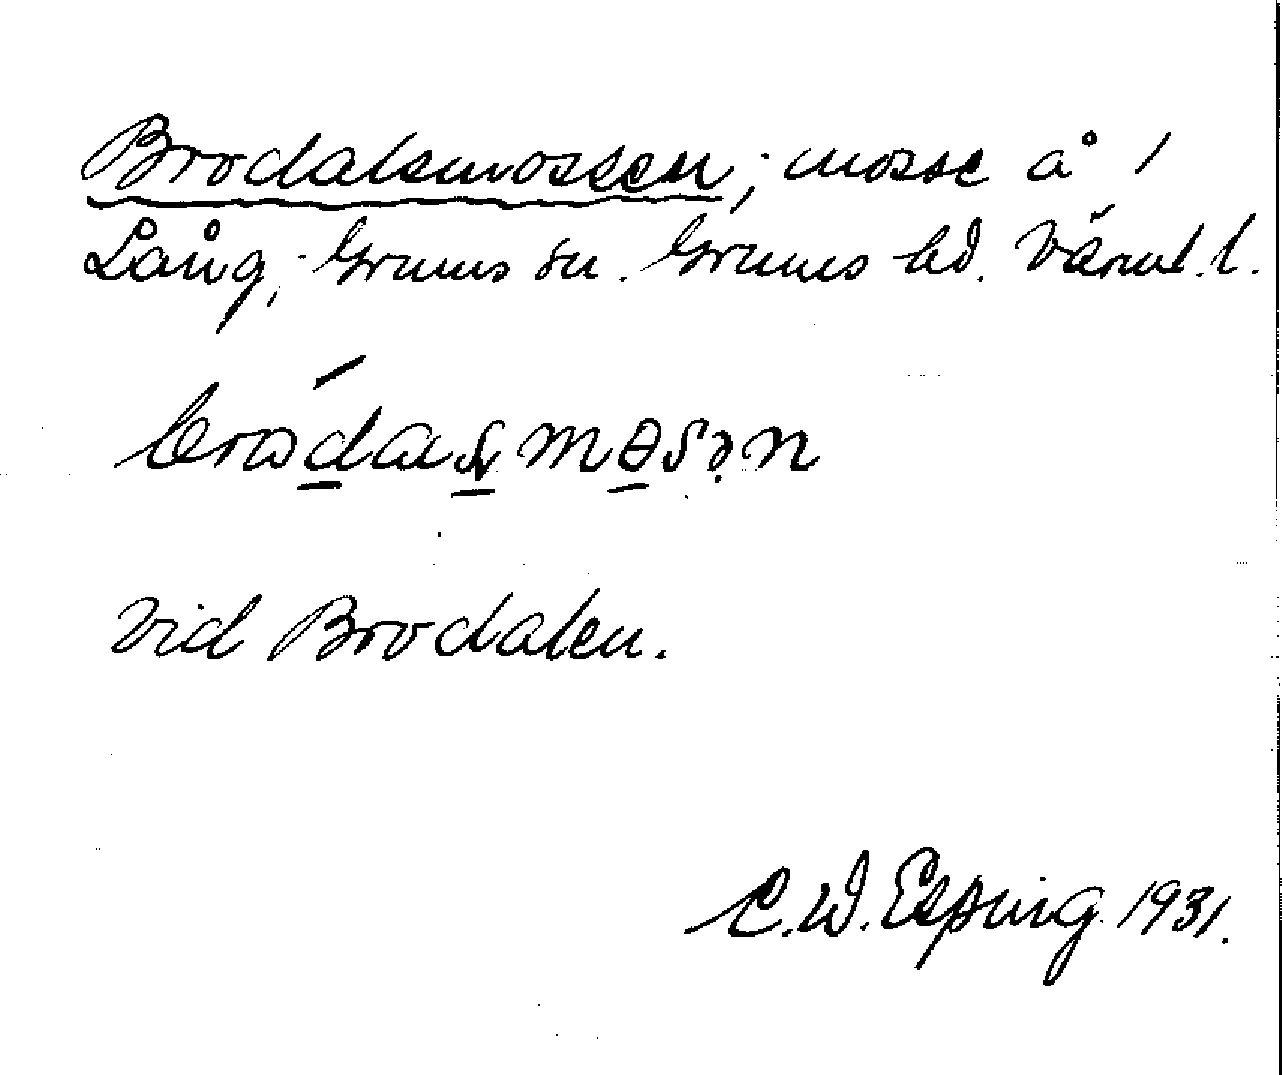 Brodalsmossen, mosse å 1
Lång, Grums sn. Grums hd. Värml. l.
Vid Brodalen.
C.W. Esping 1931.